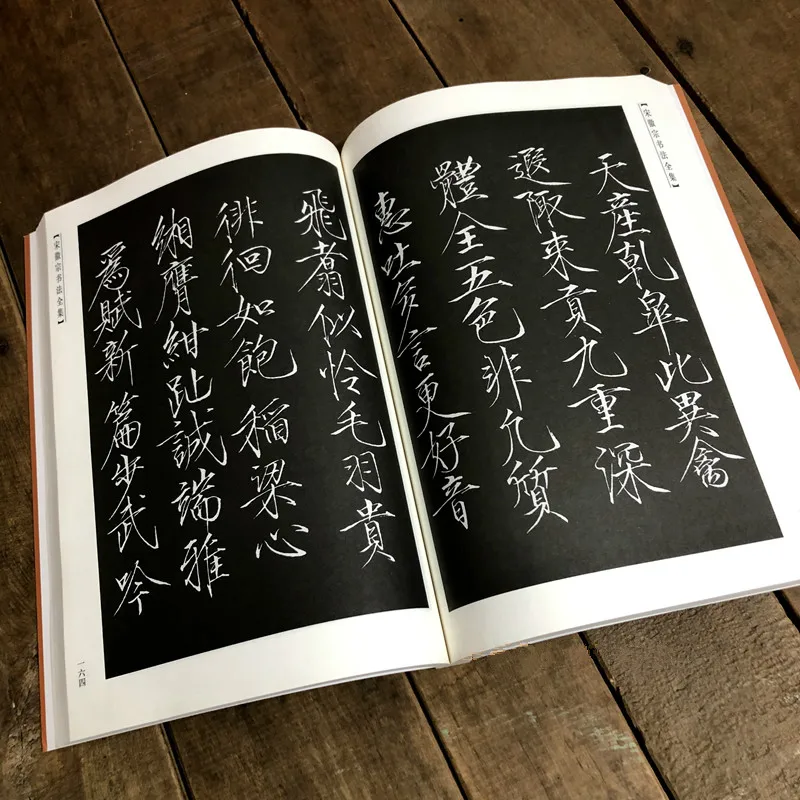 【宋徽宗书法全集】
天產乾皐此異禽
遐陬來貢九重深
體全五色非凡質
惠吐多言更好音
飛翥似怜毛羽貴
徘徊如飽稻粱心
緗膺紺趾誠端雅
為賦新篇步武吟
【宋徽宗书法全集】
一六四